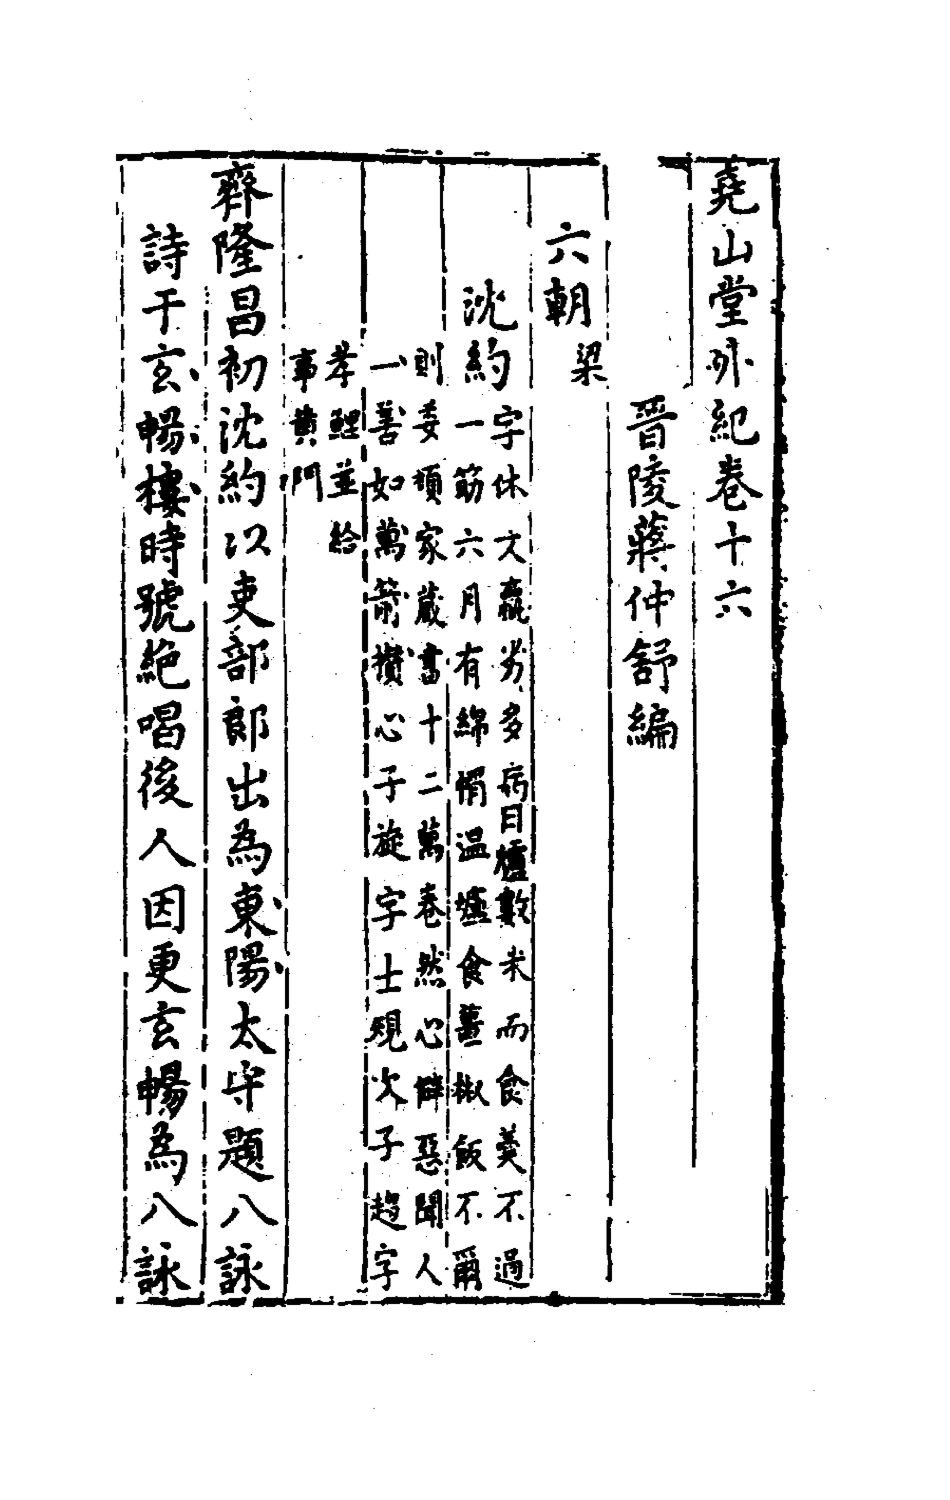 堯山堂外紀卷十六
晉陵蔣仲舒編
六朝 梁
沈約
字休文羸劣多病日櫨數米而食羹不過
一筯六月有綿帽温爐食薑椒飯不爾
則委頓家蔵書十二萬卷然心僻惡聞人
一善如萬箭攢心子旋字士規次子趨字
孝鯉並給
事黃門
齊隆昌初沈約以吏部郎出為東陽太守題八詠
詩于玄暢樓時號絶唱後人因更玄暢為八詠